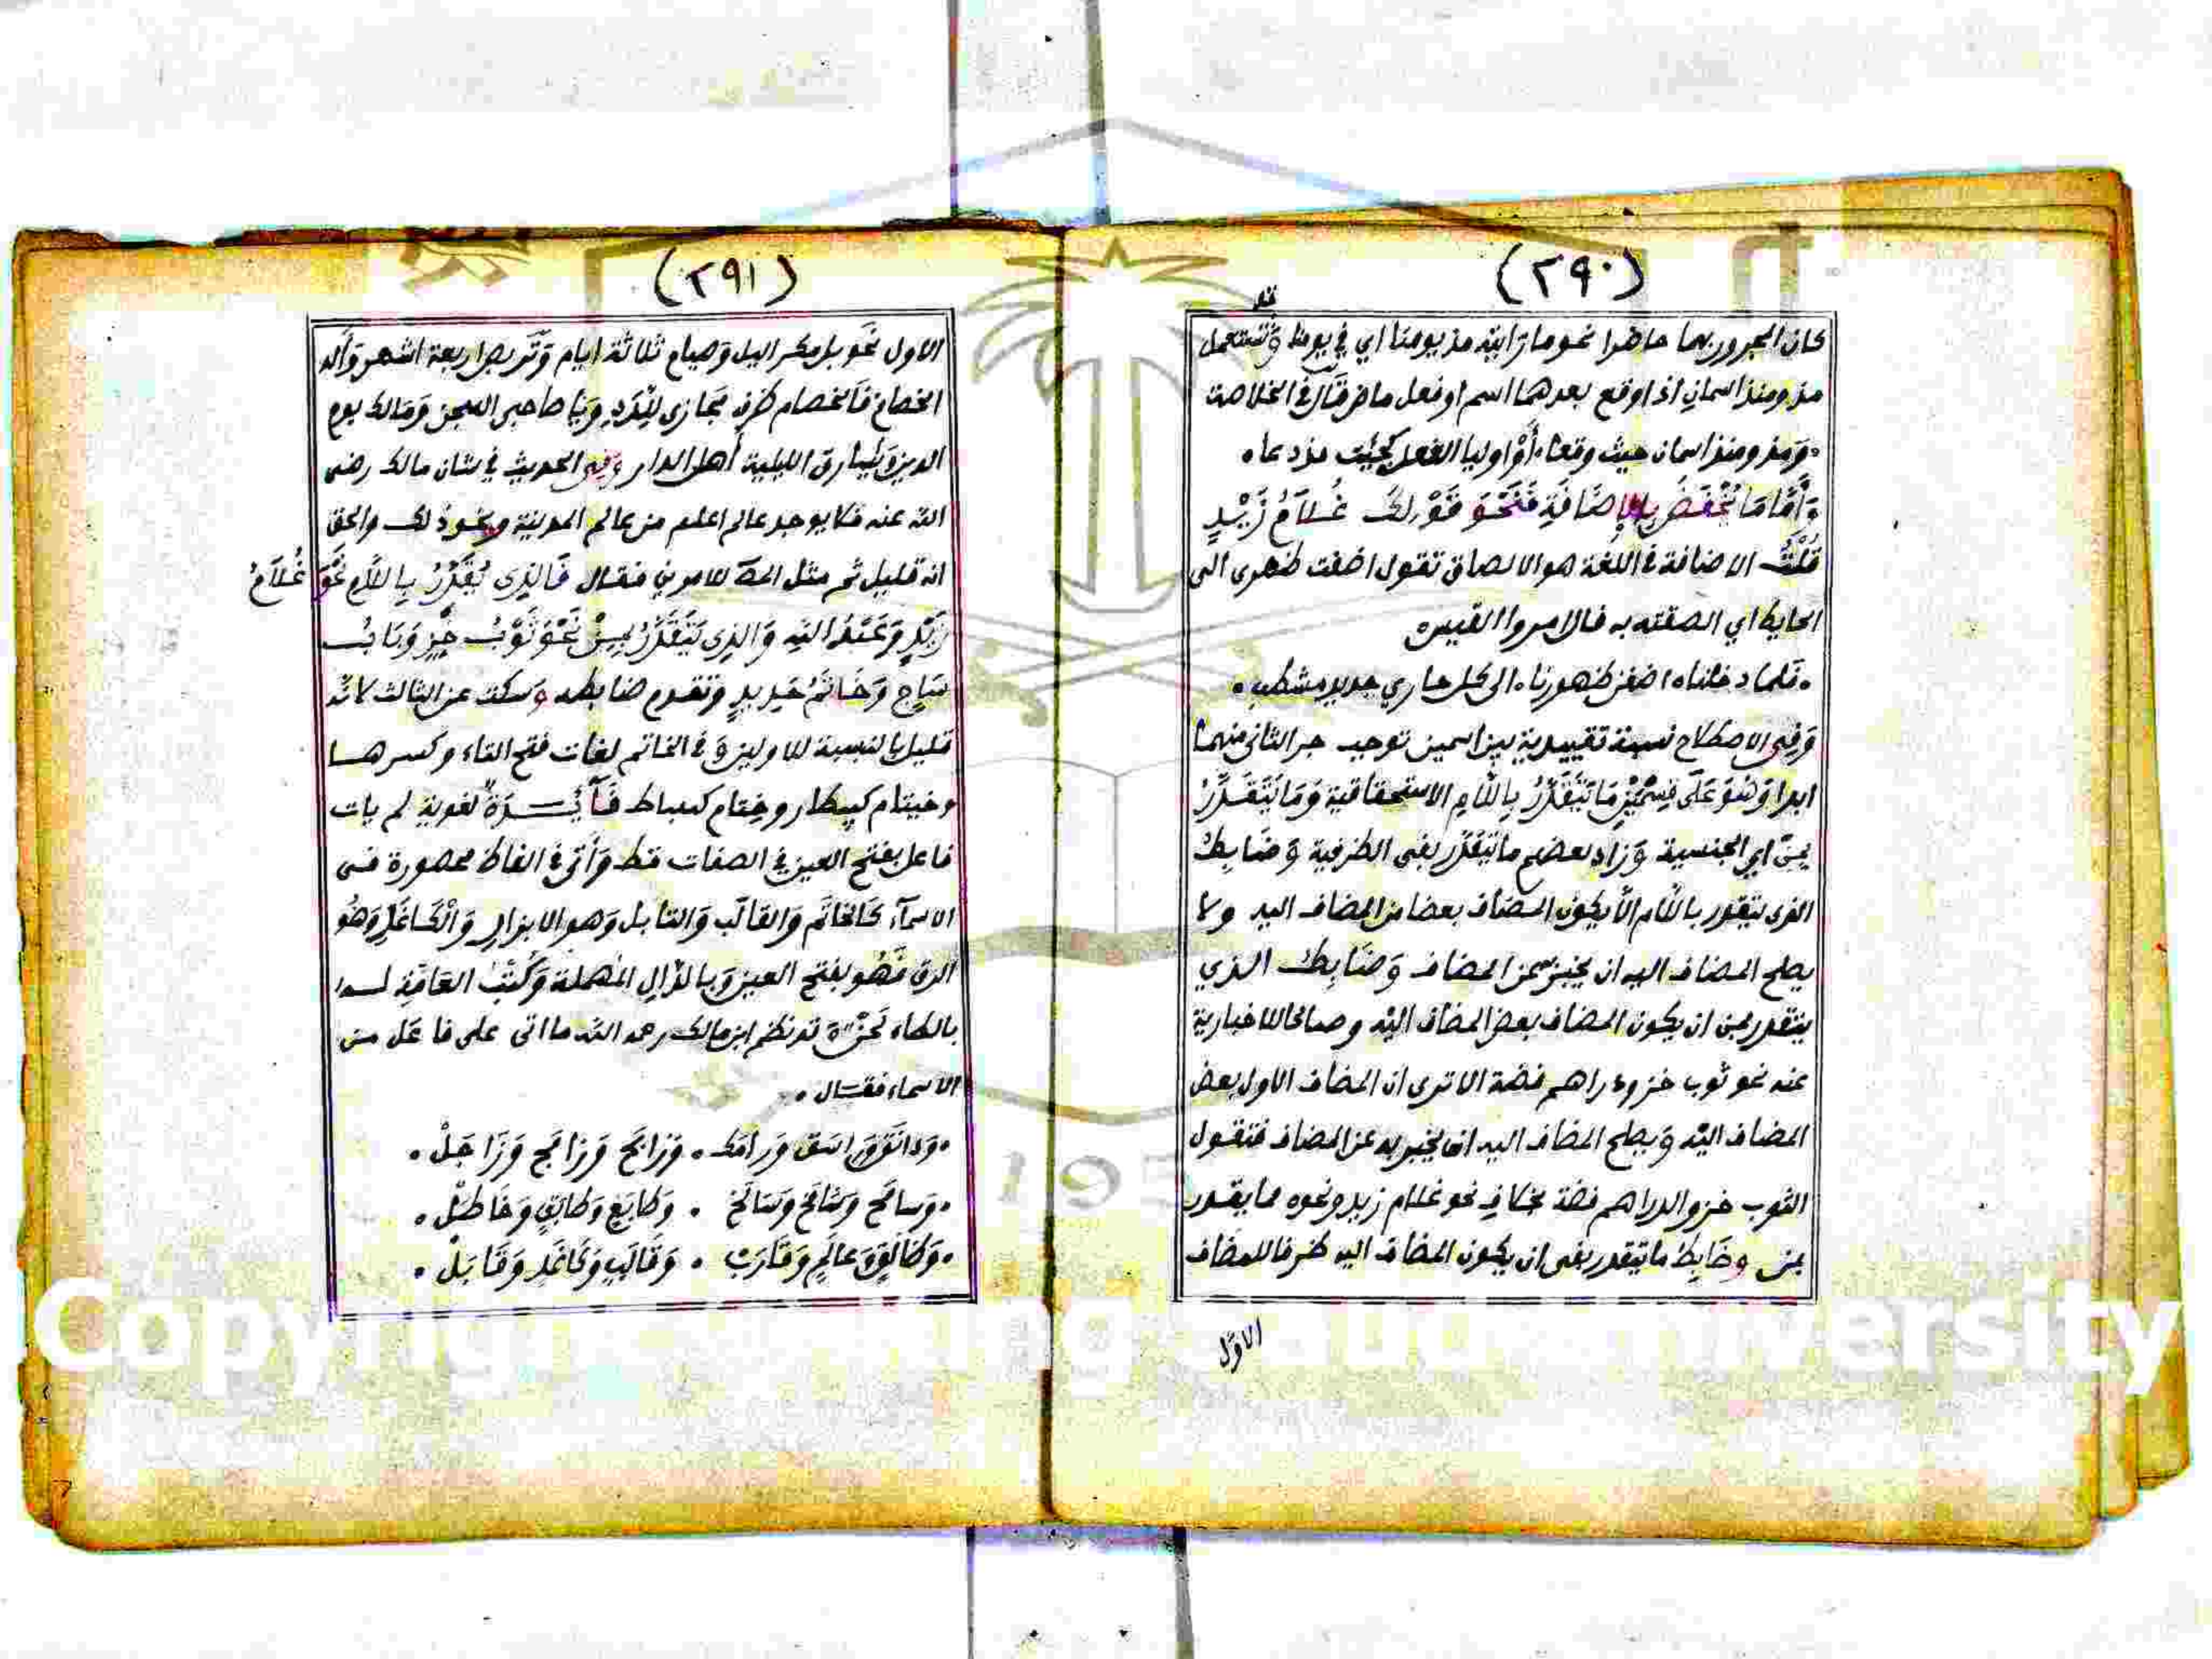 (٢٩٠)
كان المجرور بهما حاضرا نحو ما رايته مذ يومنا اي في يومنا وتستعمل
مذ ومنذ اسمان اذا وقع بعدهما اسم او فعل ماض قال في الخلاصة
ومذ ومنذ اسمان حيث رفعا اَوْ اوليا الفعل كجئت مذ دعا
وَأَمَّا مَا يُخْفَضُ بِالإِضَافَةِ فَنَحْوَ قَوْلِكَ غُلَامُ زَيْدٍ
قُلْتُ الاضافة في اللغة هو الالصاق تقول اضفت ظهري الى
الحايط اي الصقته به قال امروا القيس
فلما دخلناه اضفن ظهورنا الى كل حاري جديد مشطب
وَفِي الاصطلاح نسبة تقييدية بين اسمين توجب جر الثاني منهما
ابدا وَهُوَ عَلَى قِسْمَيْنِ مَا يَتَقَدَّرُ بِاللَّامِ الاستحقاقية وَمَا يَتَقَدَّرُ
بِمِنْ اي الجنسية وَزاد بعضهم ما يتقدر بفي الظرفية وَضابط
الذي يتقدر باللام الا يكون المضاف بعضا من المضاف اليه ولا
يصلح المضاف اليه ان يخبر به عن المضاف وَضَابِط الذي
يتقدر بمن ان يكون المضاف بعض المضاف اليه وصالحا للاخبار به
عنه نحو ثوب خز ودراهم فضة الا ترى ان المضاف الاول بعض
المضاف اليه وَيصلح المضاف اليه ان يخبر به عن المضاف فتقول
الثوب خز والدراهم فضة بخلاف نحو غلام زيد ونحوه مما يقدر
بمن وضَابِط ما يتقدر بفي ان يكون المضاف اليه ظرفا للمضاف
الاوّل
(٢٩١)
الاول نحو بل مكر اليل وَصيام ثلاثة ايام وَتربص اربعة اشهر وَألد
الخصام فَالخصام ظرف مجازي لِلَّدَدِ وَيَا صاحبي السجن وَمالك يوم
الدين وَيا سارق الليلة أهل الدار وفي الحديث في شان مالك رضي
الله عنه فلا يوجد عالم اعلم من عالم المدينة ونحو ذلك والحق
انه قليل ثم مثل المص للامرين فقال فَالَّذِي يُقَدَّرُ بِاللَّامِ نَحْوَ غُلَامُ
زَيْدٍ وَعَبْدُ اللَّهِ وَالَّذِي يَتَقَدَّرُ بِمِنْ نَحْوَ ثَوْبُ خَزٍّ وَبَابُ
سَاجٍ وَخَاتَمُ حَدِيدٍ وتقدم ضابطه وَسكت عن الثالث لانه
قليل بالنسبة للاولين وَفي الخاتم لغات فتح التاء وكسرها
وخيتام كبيطار وختام كسباط فَآئِدَةٌ لغوية لم يات
فاعل بفتح العين في الصفات قط وَأتى في الفاظ محصورة في
الاسمآء كَالخَاتَم وَالقالَب وَالتابل وَهو الابزار وَالْكَاغَد وَهُو
الورق فَهُو بفتح العين وَبالدَّالِ المهملة وَكُتُب العَامَّة له
بالظاء لَحْنٌ وَقد نظم ابن مالك رحمه الله ما اتى على فاعَل من
الاسماء فقال
وَدَانَقٌ وَرَامَك وَزَابَج وَرَامَج وَزَاجَلْ
وَطَابَع وَطَابَق
وَعالَم وَقَالَب وَكَاغَد وَقَابَلْ
Copyright © King Saud University